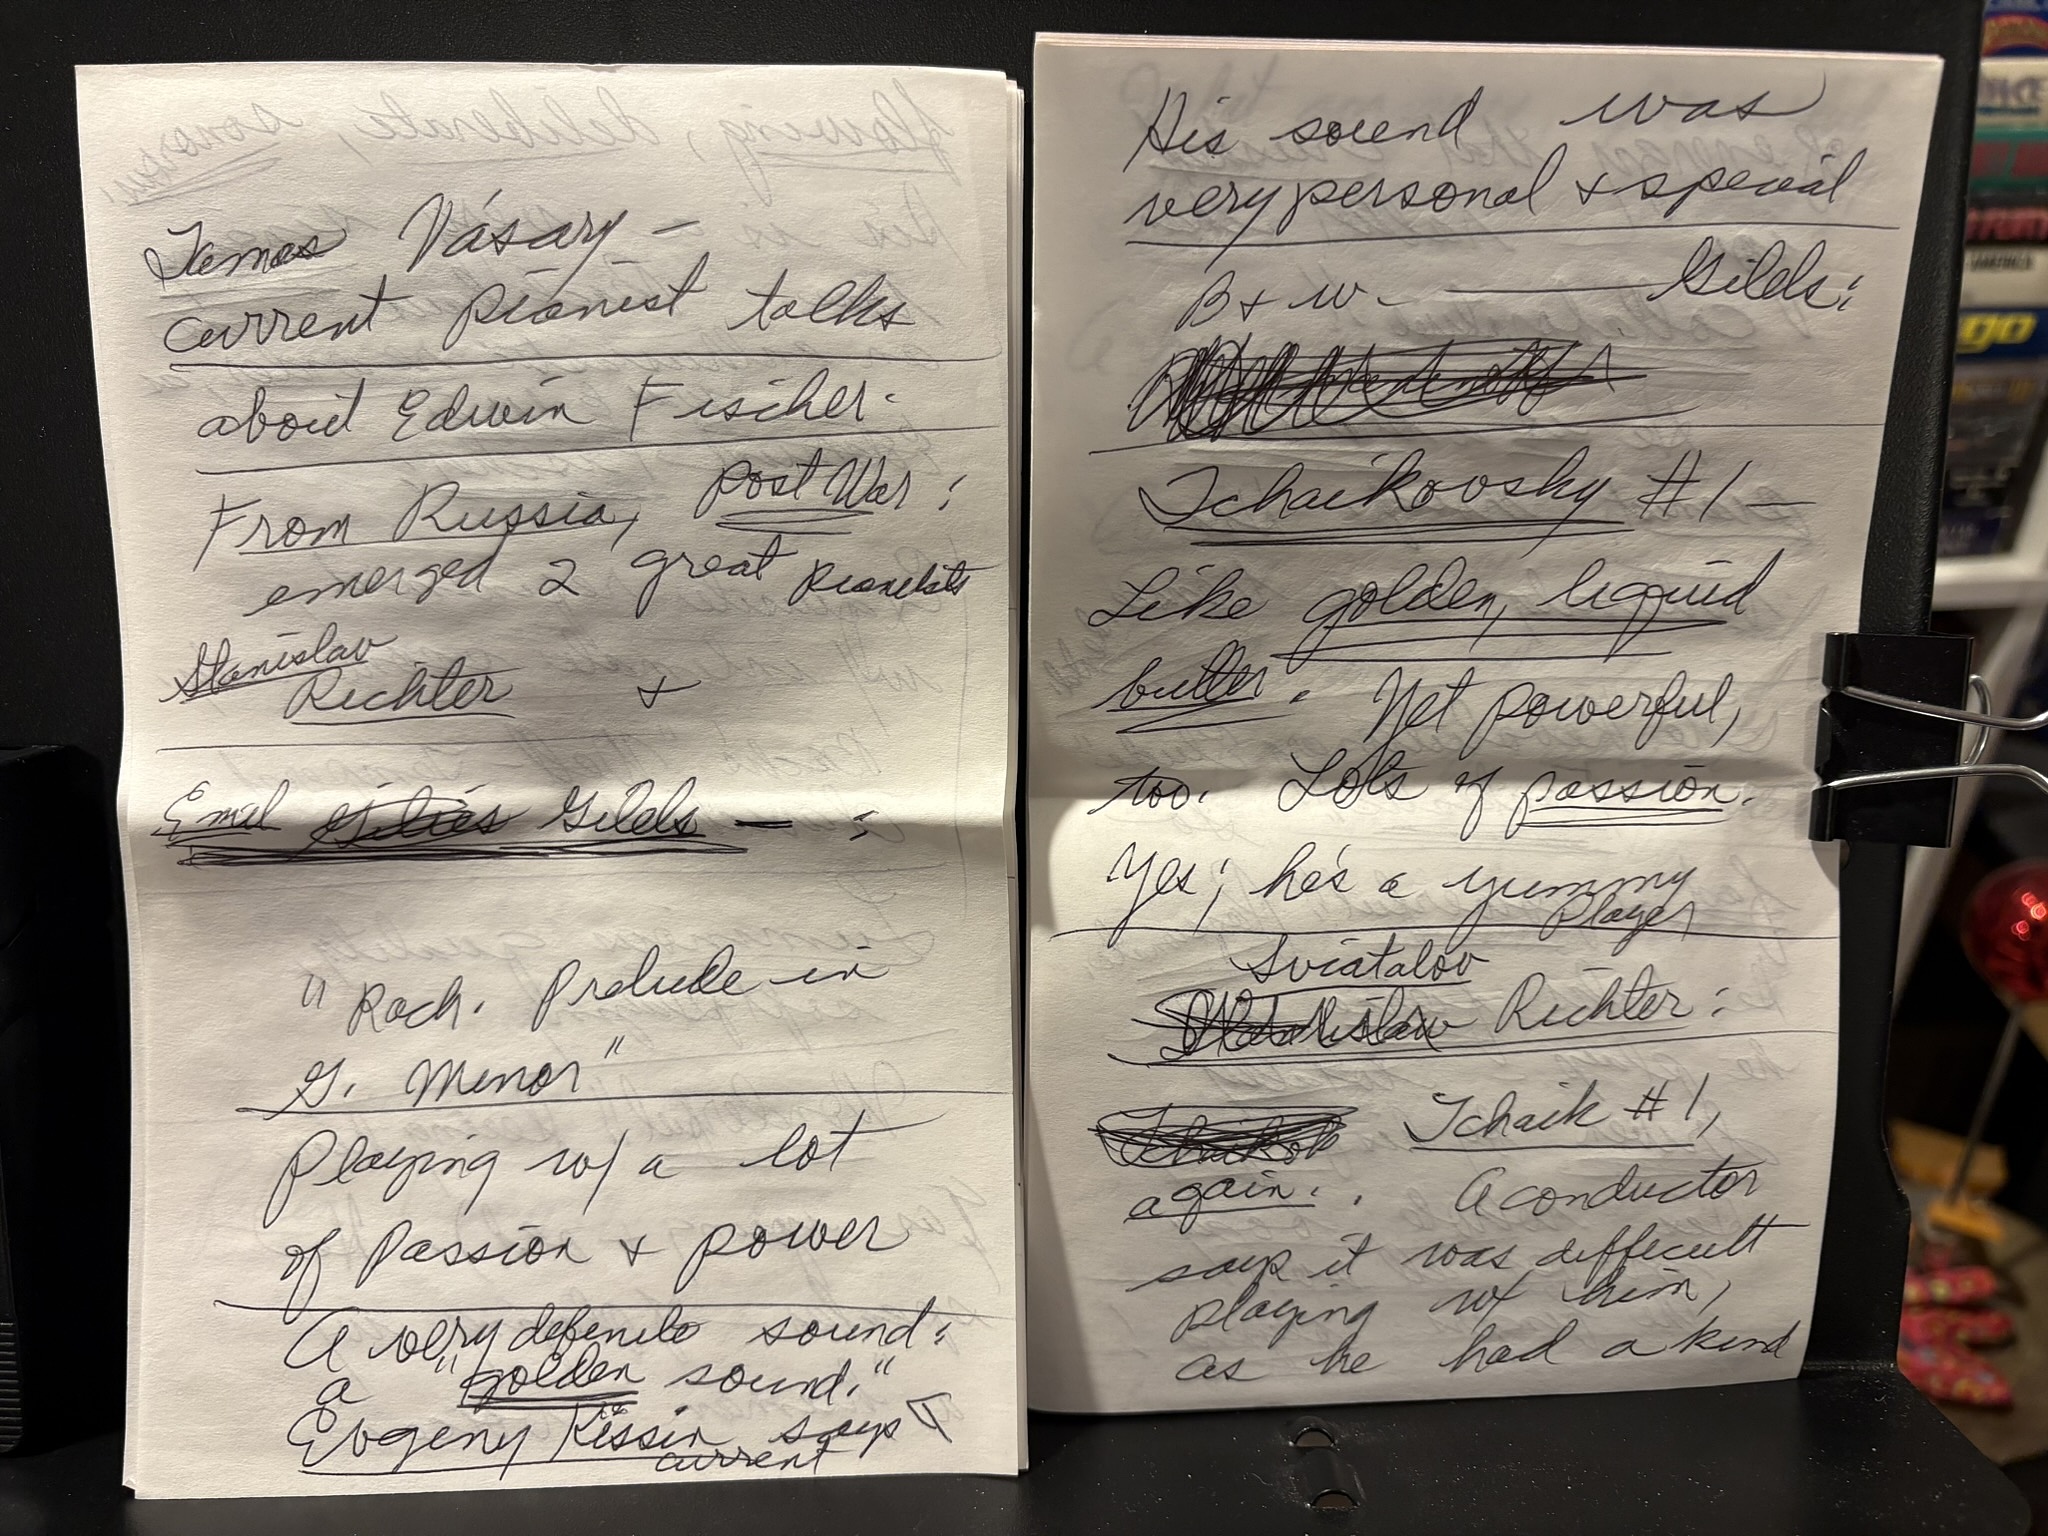 Tamas Vásary –
current pianist talks
about Edwin Fischer.
From Russia, post War:
emerged 2 great pianists
Stanislav
Richter +
Emil Gilels — :
"Rach. Prelude in
G. Minor"
Playing w/ a lot
of Passion & power
A very definite sound:
a "golden sound."
Evgeny Kissin says
current
His sound was
very personal & special
B + W. —— Gilels:
Tchaikovsky #1 –
Like golden, liquid
butter. Yet powerful,
too. Lots of passion.
Yes; he's a yummy
player
Sviatalov
Richter:
Tchaik #1,
again. . A conductor
says it was difficult
playing w/ him,
as he had a kind
go